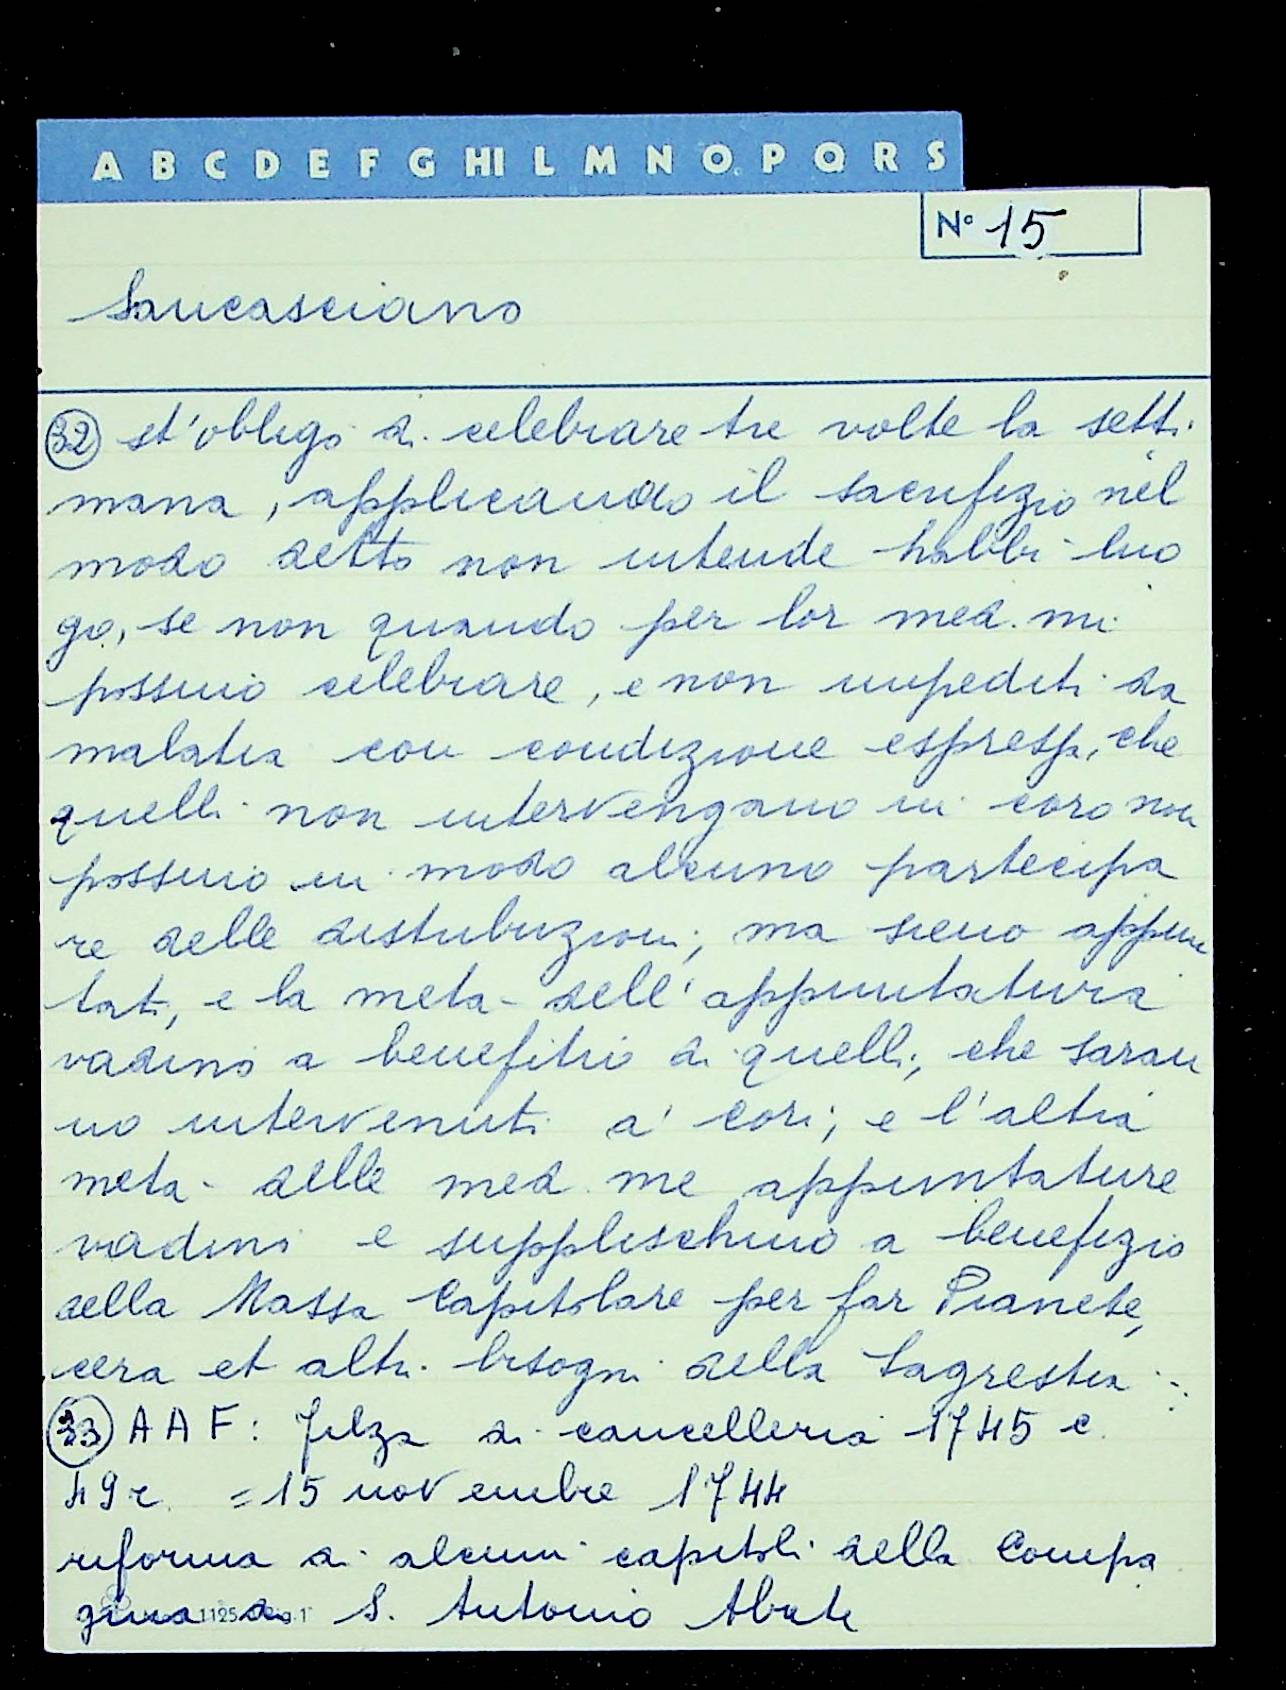 A B C D E F G HI L M N O P Q R S
N° 15
Sancasciano
32 et'obligo di celebrare tre volte la setti
mana, applicando il sacrifizio nel
modo detto non intende habbi luo
go, se non quando per lor med.mi
possino celebrare, e non impediti da
malatia con condizione espressa, che
quelli non intervengano in coro non
possino in modo alcuno partecipa
re delle distribuzioni, ma sieno appun
tati, e la meta dell'appuntatura
vadino a benefitio di quelli, che saran
no intervenuti a' cori; e l'altra
meta delle med.me appuntature
vadino e supplischino a benefizio
della Massa Capitolare per far Pianete,
cera et altri bisogni della Sagrestia
33 AAF: Filza di cancelleria 1745 c.
49r. = 15 novembre 1744
riforma di alcuni capitoli della Compa
gnia di S. Antonio Abate